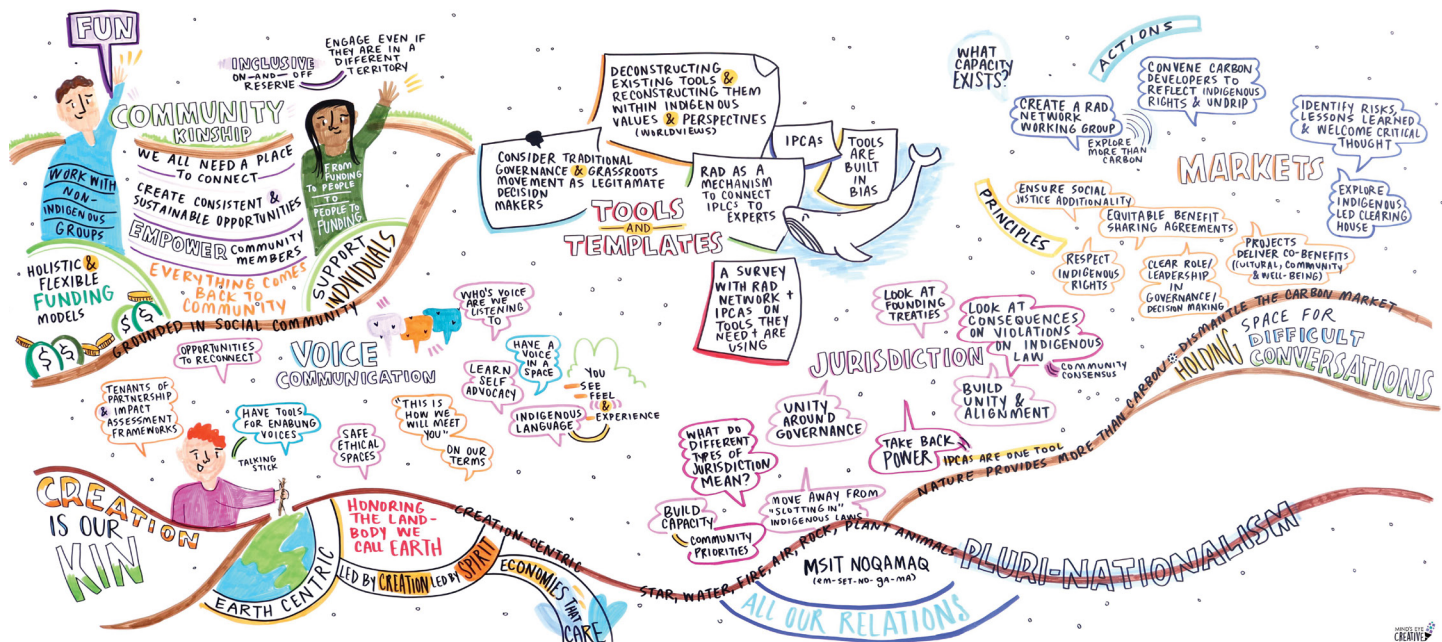 FUN
INCLUSIVE
ON-AND-OFF
RESERVE
ENGAGE EVEN IF
THEY ARE IN A
DIFFERENT
TERRITORY
COMMUNITY
KINSHIP
WE ALL NEED A PLACE
TO CONNECT
CREATE CONSISTENT &
SUSTAINABLE OPPORTUNITIES
EMPOWER COMMUNITY
MEMBERS
EVERYTHING COMES
BACK TO
COMMUNITY
WORK WITH
NON-
INDIGENOUS
GROUPS
FROM
FUNDING
TO PEOPLE
TO
PEOPLE TO
FUNDING
HOLISTIC &
FLEXIBLE
FUNDING
MODELS
$ $
$ $
SUPPORT
INDIVIDUALS
GROUNDED IN SOCIAL COMMUNITY
DECONSTRUCTING
EXISTING TOOLS &
RECONSTRUCTING THEM
WITHIN INDIGENOUS
VALUES & PERSPECTIVES
(WORLDVIEWS)
CONSIDER TRADITIONAL
GOVERNANCE & GRASSROOTS
MOVEMENT AS LEGITAMATE
DECISION
MAKERS
IPCAS
TOOLS
ARE
BUILT
IN
BIAS
RAD AS A
MECHANISM
TO CONNECT
IPLCS TO
EXPERTS
TOOLS
AND
TEMPLATES
A SURVEY
WITH RAD
NETWORK +
IPCAS ON
TOOLS THEY
NEED + ARE
USING
WHAT
CAPACITY
EXISTS?
ACTIONS
CREATE A RAD
NETWORK
WORKING GROUP
EXPLORE
MORE THAN
CARBON
CONVENE CARBON
DEVELOPERS TO
REFLECT INDIGENOUS
RIGHTS & UNDRIP
IDENTIFY RISKS,
LESSONS LEARNED
& WELCOME CRITICAL
THOUGHT
EXPLORE
INDIGENOUS
LED CLEARING
HOUSE
MARKETS
PRINCIPLES
ENSURE SOCIAL
JUSTICE ADDITIONALITY
EQUITABLE BENEFIT
SHARING AGREEMENTS
RESPECT
INDIGENOUS
RIGHTS
CLEAR ROLE/
LEADERSHIP
IN
GOVERNANCE/
DECISION MAKING
PROJECTS
DELIVER CO-BENEFITS
(CULTURAL, COMMUNITY
& WELL-BEING)
OPPORTUNITIES
TO RECONNECT
VOICE
COMMUNICATION
WHO'S VOICE
ARE WE
LISTENING
TO
HAVE A
VOICE
IN A
SPACE
LEARN
SELF
ADVOCACY
INDIGENOUS
LANGUAGE
YOU
SEE
FEEL
&
EXPERIENCE
TENANTS OF
PARTNERSHIP
& IMPACT
ASSESSMENT
FRAMEWORKS
HAVE TOOLS
FOR ENABLING
VOICES
TALKING
STICK
SAFE
ETHICAL
SPACES
"THIS IS
HOW WE
WILL MEET
YOU"
ON OUR
TERMS
LOOK AT
FOUNDING
TREATIES
LOOK AT
CONSEQUENCES
ON VIOLATIONS
ON INDIGENOUS
LAW
COMMUNITY
CONSENSUS
JURISDICTION
UNITY
AROUND
GOVERNANCE
BUILD
UNITY &
ALIGNMENT
TAKE BACK
POWER
IPCAS ARE ONE TOOL
WHAT DO
DIFFERENT
TYPES OF
JURISDICTION
MEAN?
BUILD
CAPACITY
COMMUNITY
PRIORITIES
MOVE AWAY FROM
"SLOTTING IN"
INDIGENOUS LAWS
NATURE PROVIDES MORE THAN CARBON DISMANTLE THE CARBON MARKET
HOLDING SPACE FOR
DIFFICULT
CONVERSATIONS
CREATION
IS OUR
KIN
EARTH CENTRIC
HONORING
THE LAND-
BODY WE
CALL EARTH
LED BY CREATION LED BY SPIRIT
ECONOMIES THAT
CARE
CREATION-CENTRIC
STAR, WATER, FIRE, AIR, ROCK, PLANT ANIMALS
MSIT NOQAMAQ
(em-SET-NO-ga-mA)
ALL OUR RELATIONS
PLURI-NATIONALISM
MIND'S EYE
CREATIVE